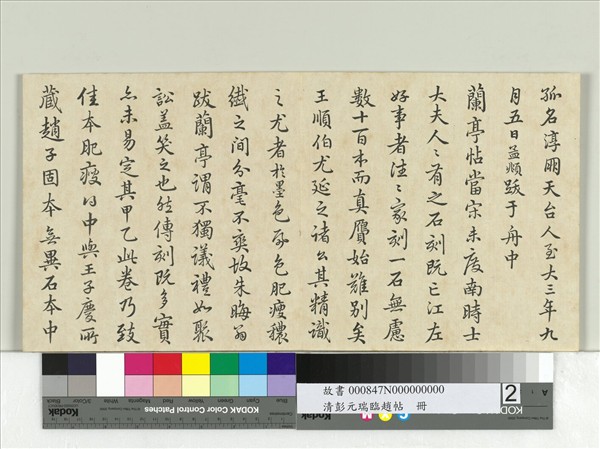 孤名淳朋天台人至大三年九
月五日孟頫跋于舟中
蘭亭帖當宋未度南時士
大夫人〻有之石刻既亡江左
好事者往〻家刻一石無慮
數十百本而真贗始難别矣
王順伯尤延之諸公其精識
之尤者於墨色紙色肥瘦穠
纖之間分毫不爽故朱晦翁
跋蘭亭謂不獨議禮如聚
訟盖笑之也然傳刻既多實
亦未易定其甲乙此卷乃致
佳本肥瘦得中與王子慶所
藏趙子固本無異石本中
故書 000847N000000000
清彭元瑞臨趙帖 冊
2
KODAK Color Control Patches
Kodak
Blue
Cyan
Green
Yellow
Red
Magenta
White
Black